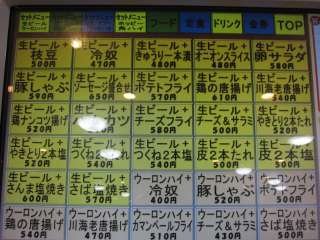 セットメニュー
生ビール
ウーロンハイ
セットメニュー
ホッピー
角ハイ
フード
定食
ドリンク
全券
TOP
生ビール+
枝豆
500円
生ビール+
冷奴
470円
生ビール+
きゅうり一本漬
480円
生ビール+
オニオンスライス
480円
生ビール+
卵サラダ
580円
生ビール+
豚しゃぶ
590円
生ビール+
ソーセージ盛合せ
生ビール+
ポテトフライ
570円
生ビール+
鶏の唐揚げ
610円
生ビール+
川海老唐揚げ
540円
生ビール+
鶏ナンコツ揚げ
520円
生ビール+
生ビール+
チーズフライ
580円
生ビール+
チーズ&サラミ
500円
生ビール+
やきとり2本たれ
520円
生ビール+
やきとり2本塩
520円
生ビール+
つくね2本たれ
540円
生ビール+
つくね2本塩
540円
生ビール+
皮2本たれ
500円
生ビール+
皮2本塩
500円
生ビール+
さんま塩焼き
600円
生ビール+
さば塩焼き
570円
ウーロンハイ+
冷奴
400円
ウーロンハイ+
豚しゃぶ
520円
ウーロンハイ+
ポテトフライ
500円
ウーロンハイ+
鶏の唐揚げ
540円
ウーロンハイ+
川海老唐揚げ
470円
ウーロンハイ+
カマンベールフライ
510円
ウーロンハイ+
チーズ&サラミ
430円
ウーロンハイ+
さば塩焼き
500円